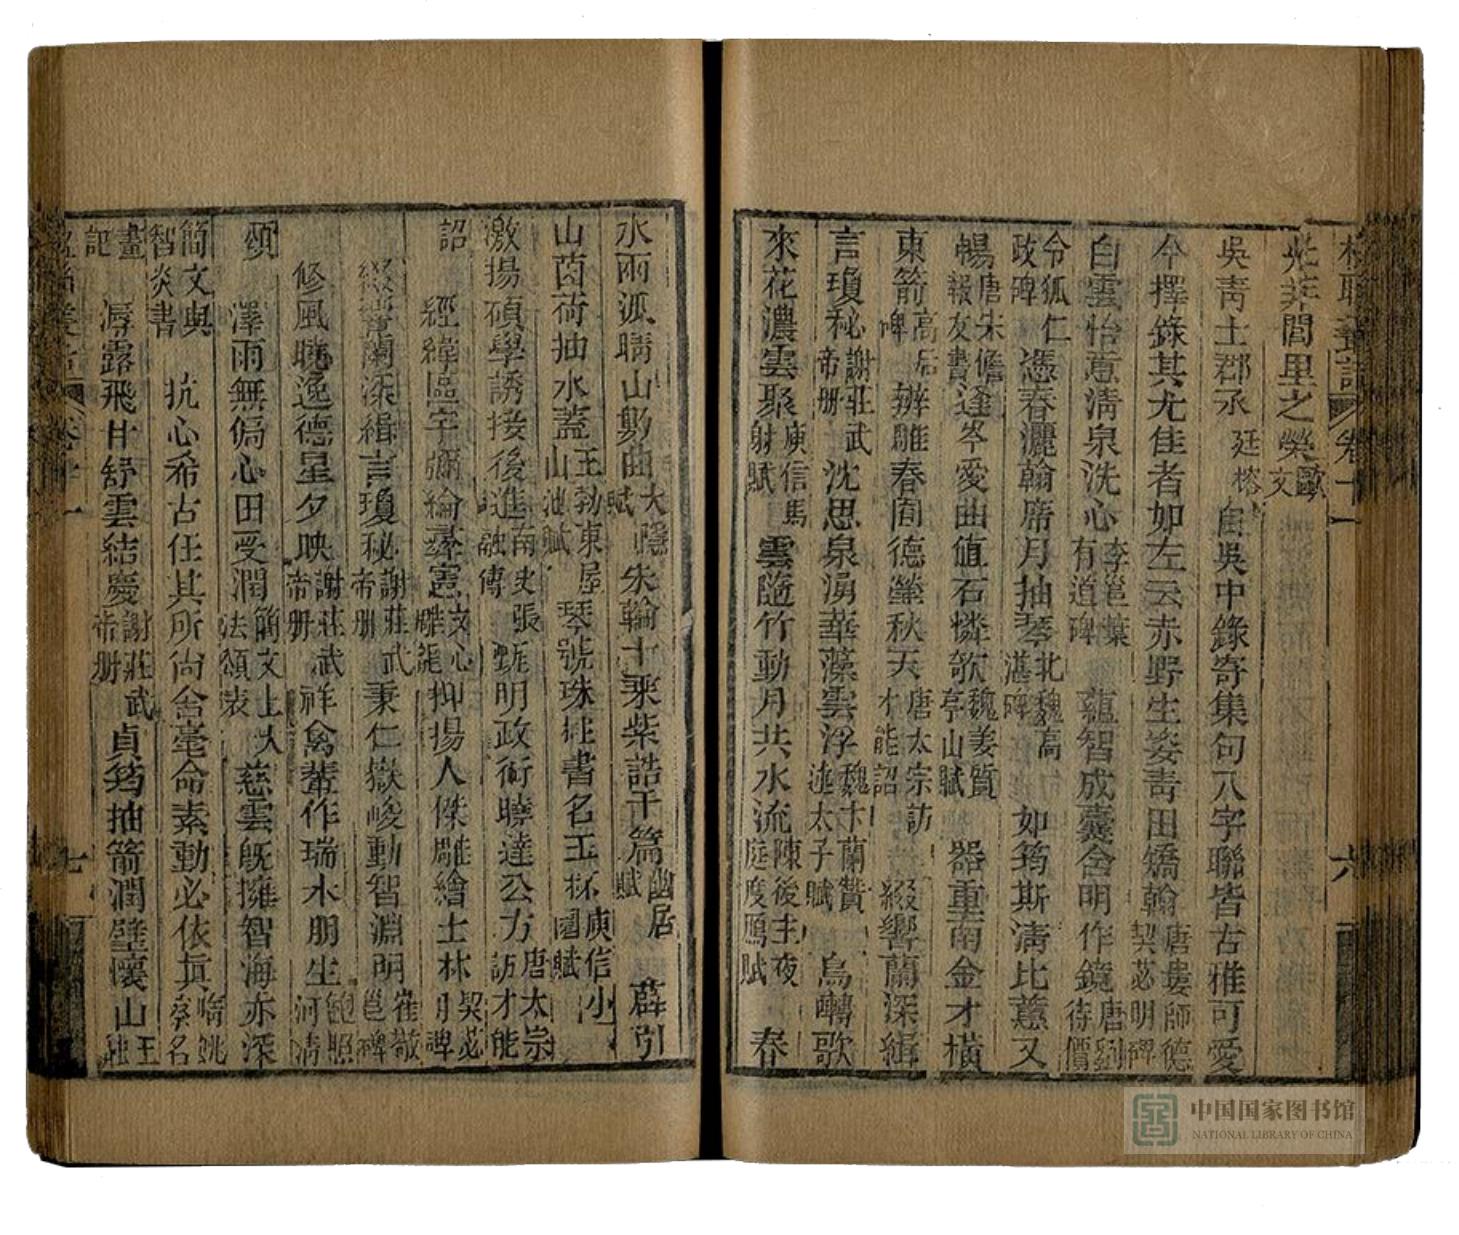 楹聯叢話 卷十一 六
光菲閭里之榮歐文
吳靑士郡丞廷榕自吳中錄寄集句八字聯皆古雅可愛
今擇錄其尤佳者如左云赤野生姿靑田矯翰唐婁師德契苾明碑
白雲怡意淸泉洗心李邕葉有道碑蘊智成囊舍明作鏡唐劉待價
令狐仁政碑憑春灑翰席月抽琴北魏高湛碑如筠斯淸比蕙又
暢唐朱儋報友書逢岑愛曲值石憐欹魏姜質亭山賦器重南金才橫
東箭高居碑辨雕春囿德瑩秋天唐太宗訪才能詔綴響蘭深緝
言瓊秘謝莊武帝册沈思泉湧華藻雲浮魏卞蘭贊述太子賦鳥囀歌
來花濃雲聚庾信馬射賦雲隨竹動月共水流陳後主夜庭度鴈賦春
水雨弧睛山數曲大隱賦朱輪十乘紫誥千篇幽居賦薜引
山茵荷抽水蓋王勃東屋山池賦琴號珠柱書名玉杯庾信小園賦
激揚碩學誘接後進南史張融傳甄明政術曉達公方唐太宗訪才能
詔經緯區宇彌綸彝憲文心雕龍抑揚人傑雕繪士林契苾明碑
綴響蘭深緝言瓊秘謝莊武帝册秉仁嶽峻動智淵明崔敬邕碑
修風曉逸德星夕映謝莊武帝册祥禽輩作瑞木朋生鮑照河淸
頌澤雨無偏心田受潤簡文上大法頌表慈雲旣擁智海亦深
簡文與智炎書抗心希古任其所尙舍毫命素動必依真隋姚察名
畫記溽露飛甘舒雲結慶謝莊武帝册貞筠抽箭潤璧懷山王融
七
中国国家图书馆
NATIONAL LIBRARY OF CHINA